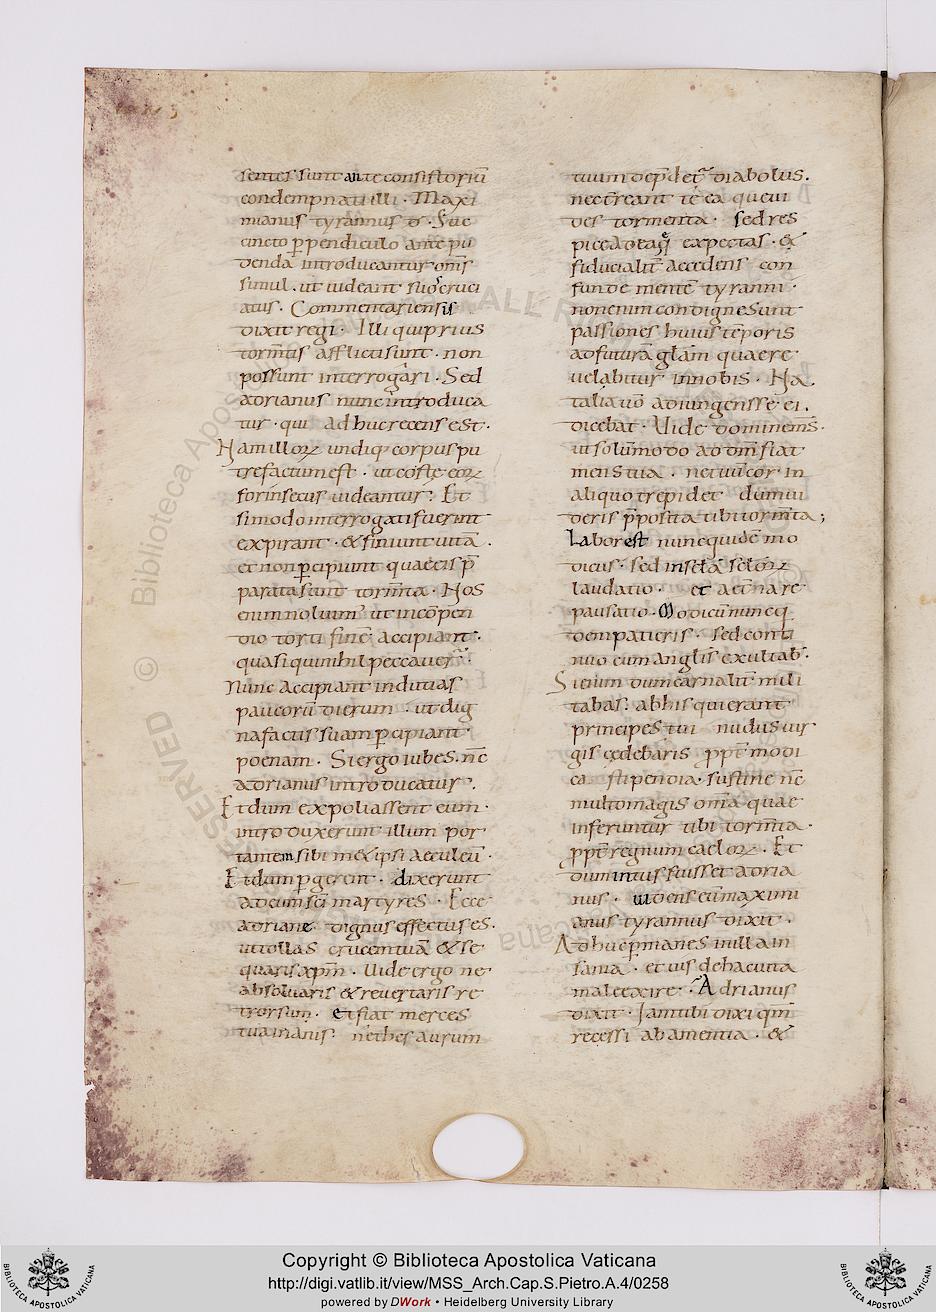 sentes sunt ante consistoriū
condempnati illi · Maxi
mianus tyrannus d̄ · Suc
cincto ꝑpendiculo ante pu
denda introducantur om̄s
simul · ut uideant suos cruci
atus · Commentariensis
dixit regi · Illi qui prius
torm̄tis afflicti sunt · non
possunt interrogari · Sed
adrianus nunc introduca
tur · qui adhuc recens est ·
Nam illoꝝ undiq; corpus pu
trefactum est · ut costę eoꝝ
forinsecus uideantur : Et
si modo interrogati fuerint
expirant · & finiunt uitā ·
et non ꝑcipiunt quae eis p̄
parata sunt torm̄ta · Nos
enim nolum' ut in cōpen
dio torti finē accipiant ·
quasi qui nihil peccauer̄ ·
Nunc accipiant indutias
paucorū dierum · ut dig
na factis suam ꝑcipiant
poenam · Si ergo iubes · nc̄
adrianus introducatur ·
Et dum expoliassent eum ·
introduxerunt illum por
tantem sibimet ipsi aeculeū ·
Et dum ꝑgerent · dixerunt
ad eum sc̄i martyres · Ecce
adriane dignus effectus es ·
ut tollas crucem tuā & se
quaris xp̄m · Uide ergo ne
absoluaris & reuertaris re
trorsum · et fiat merces
tua inanis · ne thesaurum
tuum dep̄det̄ diabolus ·
nec terreant te ea que ui
des tormenta · sed res
pice ad ea quę expectas · &
fiducialit̄ accedens con
funde mentē tyranni ·
non enim condigne sunt
passiones huius tēporis
ad futurā gl̄am quae re
uelabitur in nobis · Na
talia uō adiungens se ei ·
dicebat · Uide domine m̄s ·
ut solūmodo ad dm̄ fiat
mens tua · ne tuū cor in
aliquo trepidet dum ui
deris p̄posita tibi torm̄ta ;
Labor est nunc quidē mo
dicus · sed in sęlā sęloꝝ
laudatio · et aet̄na re
pausatio · Modicū nunc q
dem patieris · sed conti
nuo cum anglis exultab̄ ·
Si enim dum carnalit̄ mili
tabas : ab his qui erant
principes tui nudus uir
gis cędebaris ppt̄ modi
ca stipendia · sustine nc̄
multo magis om̄a quae
inferuntur tibi torm̄ta ·
ppt̄ regnum caeloꝝ · Et
dum intus fuisset adria
nus · uidens eū maximi
anus tyrannus dixit ·
Adhuc ꝑmanes in illa in
sania · et uis de hac uita
male exire · Adrianus
dixit · Iam tibi dixi qm̄
recessi ab amentia · &
Copyright © Biblioteca Apostolica Vaticana
http://digi.vatlib.it/view/MSS_Arch.Cap.S.Pietro.A.4/0258
powered by DWork • Heidelberg University Library